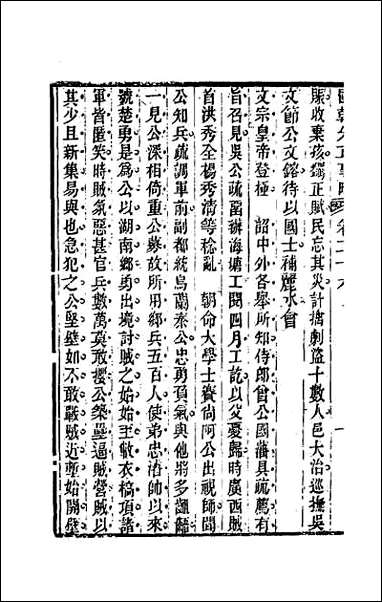 國朝先正事略 卷二十六
賑收棄孩獨正賦民忘其災計擒劇盜十數人邑大治巡撫吳
文節公文鎔待以國士補麗水會
文宗皇帝登極 詔中外各舉所知侍郎曾公國藩具疏薦有
旨召見吳公疏留辦海塘工閱四月工訖以父憂歸時廣西賊
首洪秀全楊秀清等稔亂 朝命大學士賽尚阿公出視師聞
公知兵疏調軍前副都統烏蘭泰公忠勇負氣與他將多齟齬
一見公深相倚重公募故所用鄉兵五百人使弟忠濬帥以來
號楚勇是為公以湖南鄉勇出境討賊之始始至敝衣槁項諸
軍皆匿笑時賊氛惡甚官兵數萬莫敢攖公築壘逼賊營賊以
其少且新集易與也急犯之公堅壁如不敢嚴賊近塹始開壁